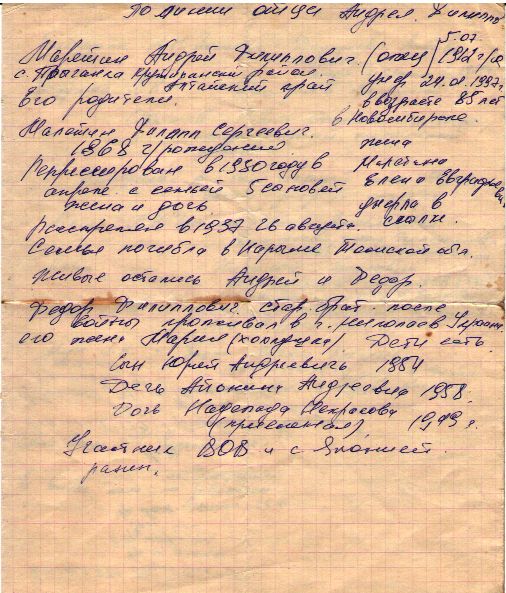 По линии отца Андрея Филипп
Малетин Андрей Филиппович. (отец) 5.07. 1912 г/р
с. Прыганка Крутихинский район. Алтайский край
умер 24.01.1997г.
Его родители.
в возрасте 85 лет
в Новосибирске.
Малетин Филипп Сергеевич.
1868 г/рождения
жена
Малетина
Елена
умерла в
ссылке.
Репрессирован в 1930 году в
апреле с семьей 5 сыновей
жена и дочь
Расстрелян в 1937 26 августа.
Семья погибла в Нарыме Томской обл.
Живые остались Андрей и Федор.
Федор Филиппович. стар. брат. после
войны проживал в г. Николаев Украин.
его жена Мария (хохлушка). Дети есть.
Сын Юрий Андреевичь 1954
Дочь Андреевна 1958.
Дочь Надежда Некрасова
(приемная) 1949 г.
Участник ВОВ и с Японией.
ранен.